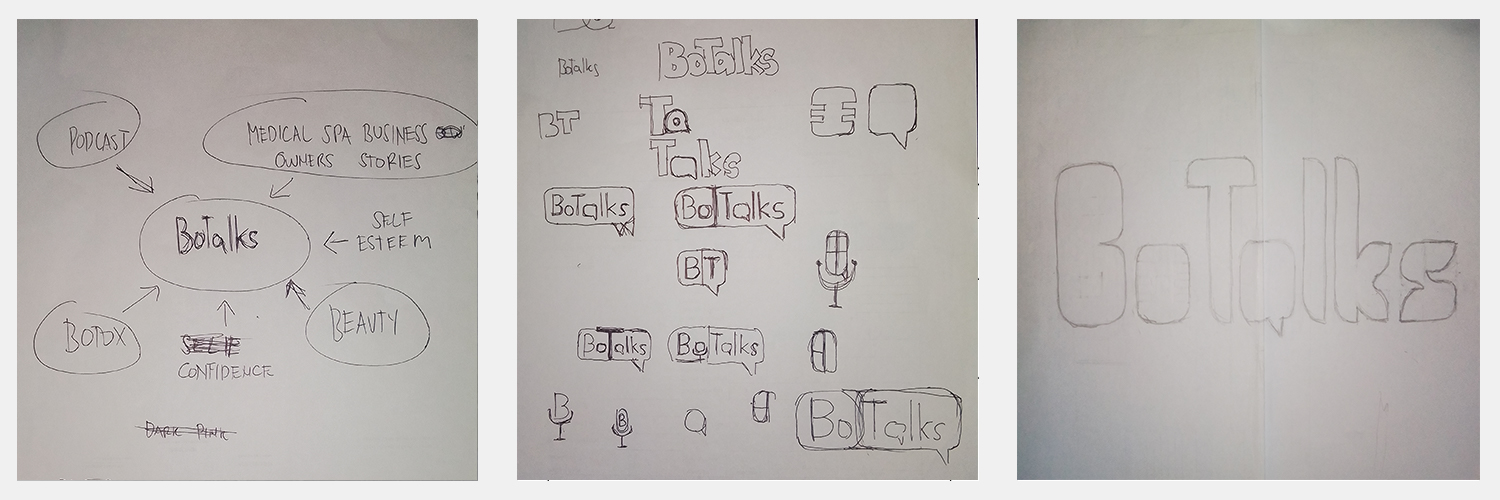 PODCAST
MEDICAL SPA BUSINESS
OWNERS STORIES
BoTalks
SELF
ESTEEM
BOTOX
BEAUTY
SELF
CONFIDENCE
DARK PINK
BoTalks
BoTalks
BT
Ta
Talks
BoTalks
BoTalks
BT
BoTalks
BoTalks
B
B
BoTalks
BoTalks